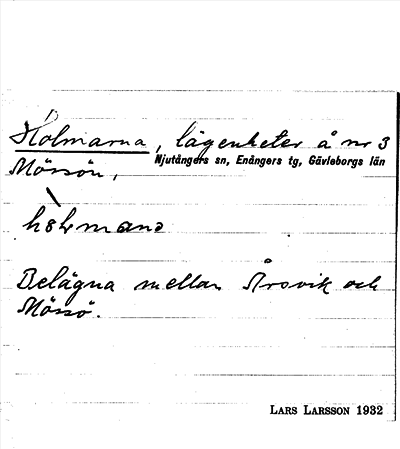 Holmarna, lägenheter å nr 3
Njutångers sn, Enångers tg, Gävleborgs län
Mössön,
Belägna mellan Årsvik och
Mössö.
LARS LARSSON 1932